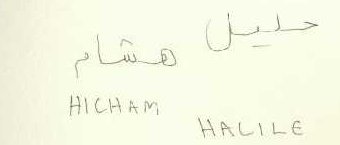 حليل هشام
HICHAM
HALILE